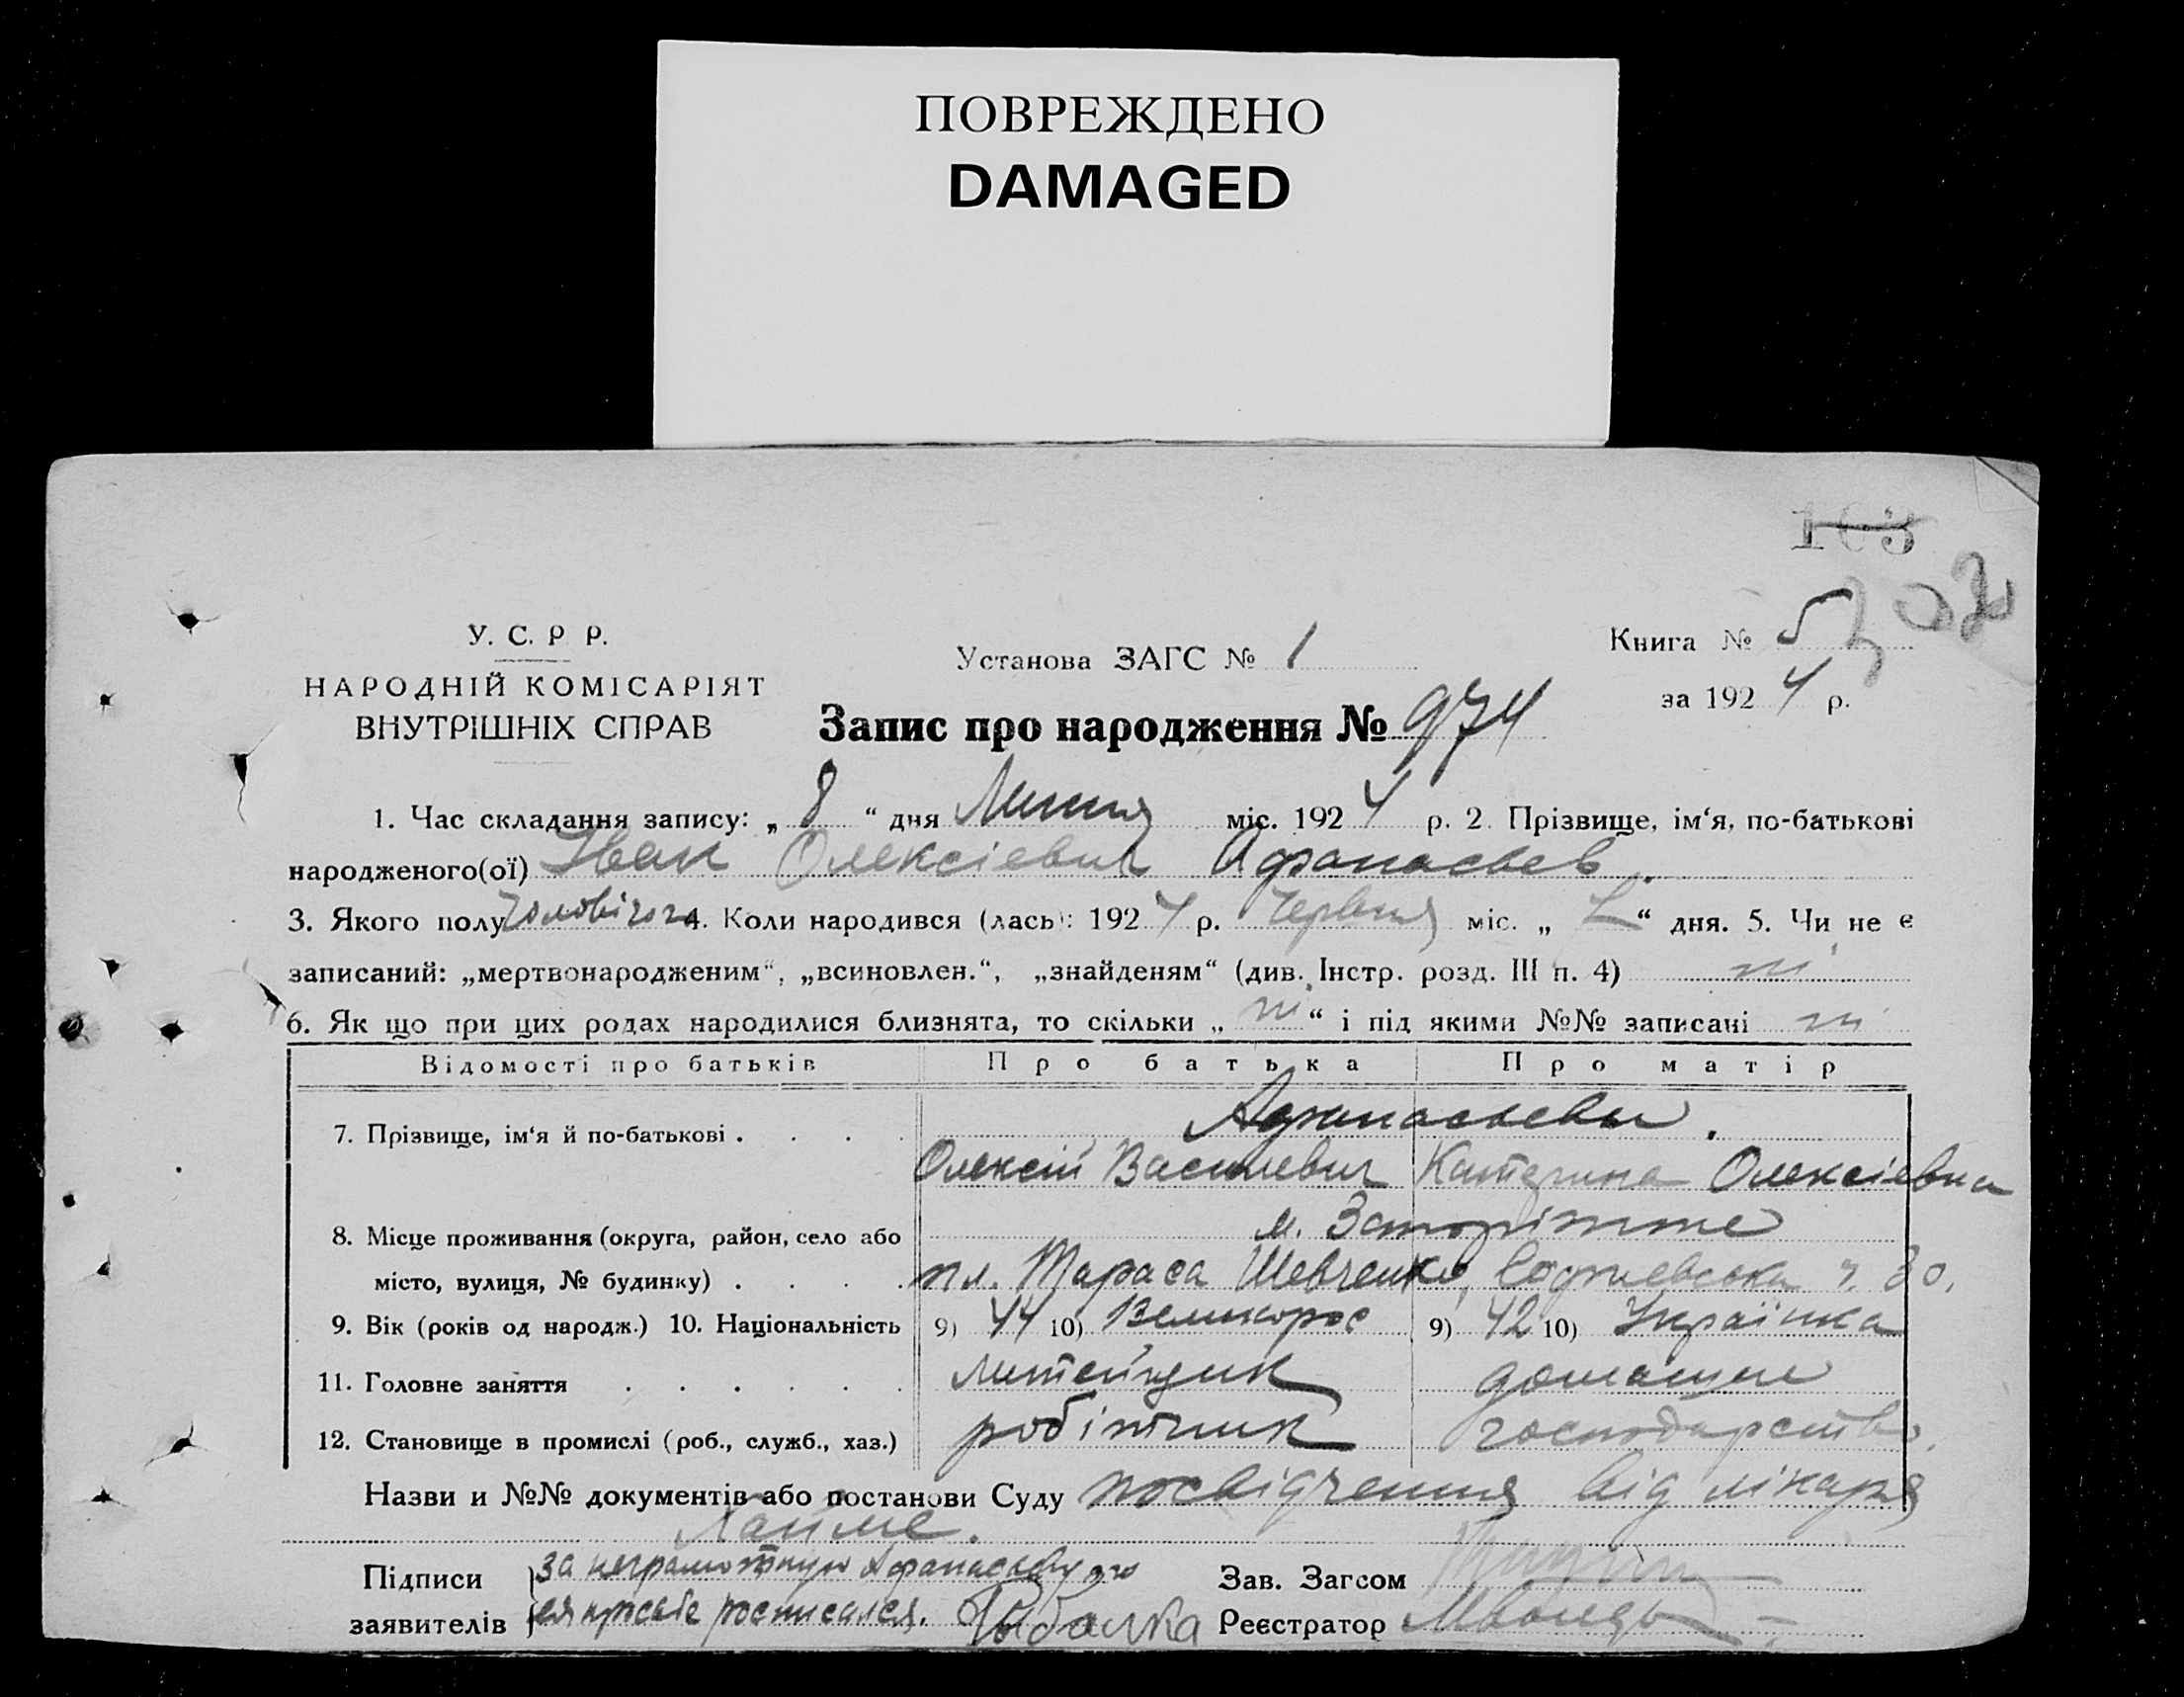 ПОВРЕЖДЕНО
DAMAGED
103
У. С. Р Р.
НАРОДНІЙ КОМІСАРІЯТ
ВНУТРІШНІХ СПРАВ
Установа ЗАГС № 1
Книга № 5
за 1924 р.
Запис про народження № 974
1. Час складання запису: „ 8 “ дня Липня міс. 1924 р. 2. Прізвище, ім‘я, по-батькові
народженого(ої) Іван Олексієвич Афанасьев
3. Якого полу чоловічого 4. Коли народився (лась): 1924 р. Червня міс. „ “ дня. 5. Чи не є
записаний: „мертвонародженим“, „всиновлен.“, „знайденям“ (див. Інстр. розд. III п. 4) ні
6. Як що при цих родах народилися близнята, то скільки „ ні “ і під якими №№ записані ні
Відомості про батьків Про батька Про матір
7. Прізвище, ім‘я й по-батькові . . . . Афанасьевы.
Олексій Василевич Катерина Олексієвна
8. Місце проживання (округа, район, село або м. Запоріжже
місто, вулиця, № будинку) . . . . пл. Тараса Шевченко, ч. 30.
9. Вік (років од народж.) 10. Національність 9) 44 10) Великорос 9) 42 10) Українка
11. Головне заняття . . . . . . литейщик домашне
12. Становище в промислі (роб., служб., хаз.) робітник господарство.
Назви и №№ документів або постанови Суду посвідчення від лікаря
Підписи за неграмотную Афанасьеву по
заявителів ея просьбе росписался. Рыбалка
Зав. Загсом
Реєстратор